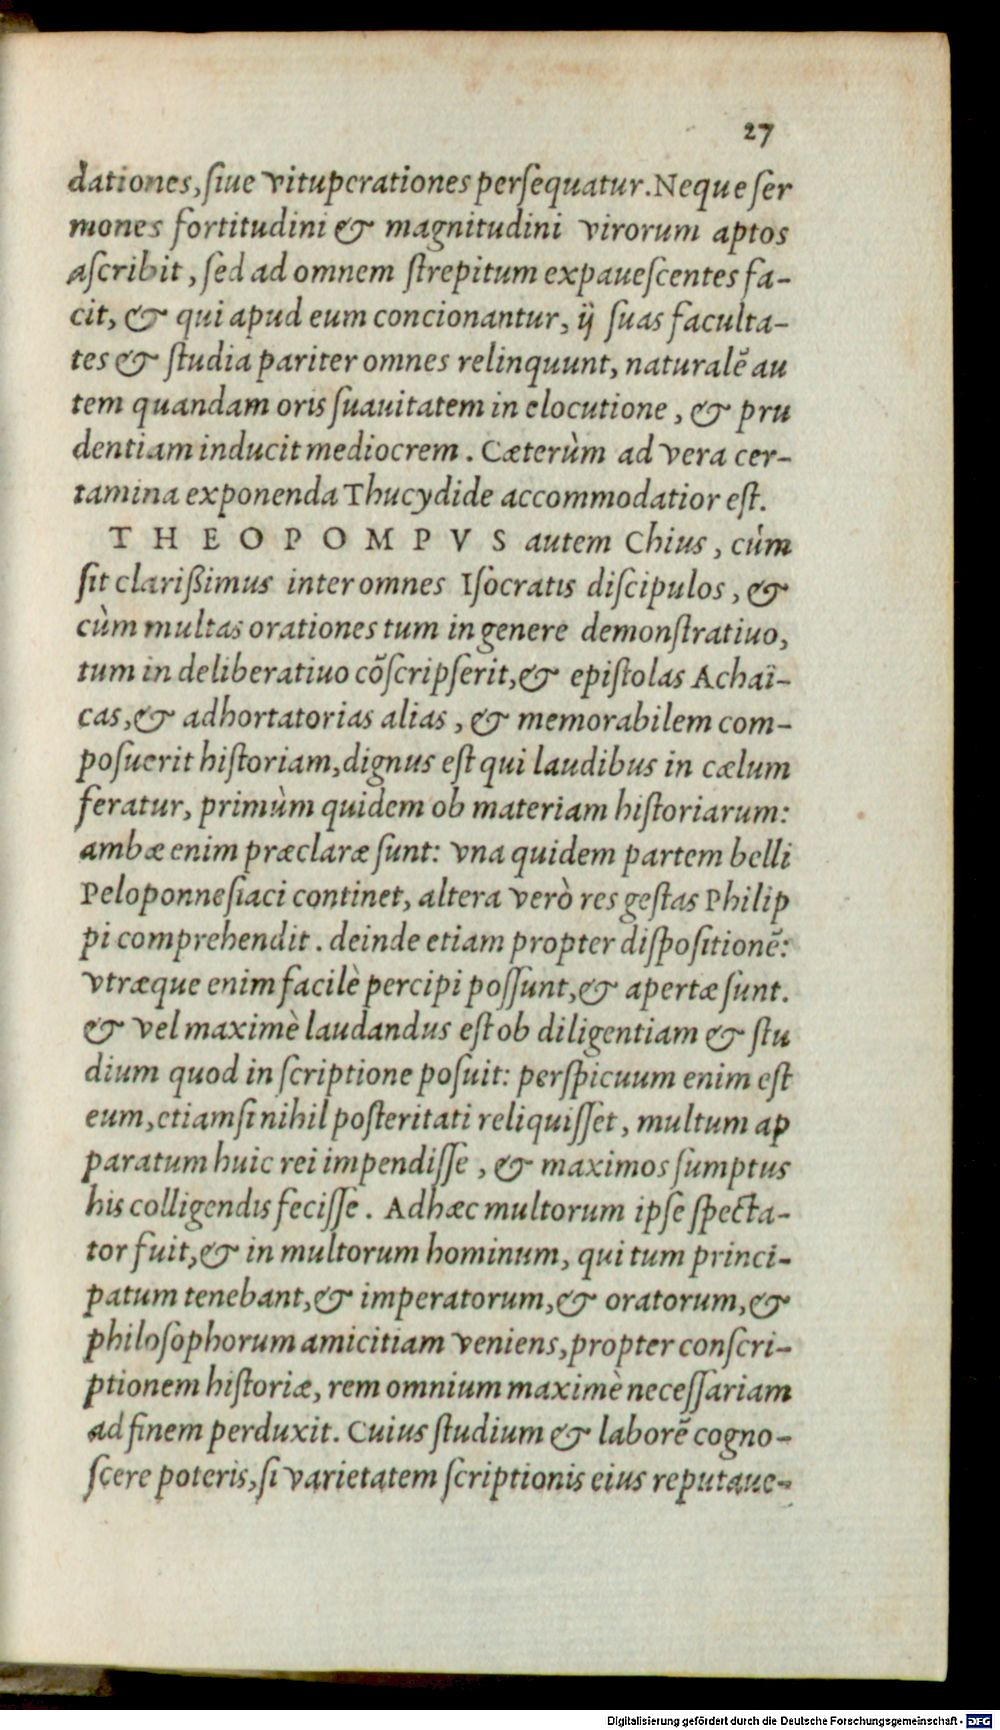 27
dationes, ſiue vituperationes perſequatur. Neque ſer
mones fortitudini & magnitudini virorum aptos
aſcribit, ſed ad omnem ſtrepitum expaueſcentes fa-
cit, & qui apud eum concionantur, ij ſuas faculta-
tes & ſtudia pariter omnes relinquunt, naturalẽ au
tem quandam oris ſuauitatem in elocutione, & pru
dentiam inducit mediocrem. Cæterùm ad vera cer-
tamina exponenda Thucydide accommodatior eſt.
THEOPOMPVS autem Chius, cùm
ſit clarißimus inter omnes Iſocratis diſcipulos, &
cùm multas orationes tum in genere demonſtratiuo,
tum in deliberatiuo cõſcripſerit, & epiſtolas Achaï-
cas, & adhortatorias alias, & memorabilem com-
poſuerit hiſtoriam, dignus eſt qui laudibus in cælum
feratur, primùm quidem ob materiam hiſtoriarum:
ambæ enim præclaræ ſunt: vna quidem partem belli
Peloponneſiaci continet, altera verò res geſtas Philip
pi comprehendit. deinde etiam propter diſpoſitionẽ:
vtræque enim facilè percipi poſſunt, & apertæ ſunt.
& vel maximè laudandus eſt ob diligentiam & ſtu
dium quod in ſcriptione poſuit: perſpicuum enim eſt
eum, etiamſi nihil poſteritati reliquiſſet, multum ap
paratum huic rei impendiſſe, & maximos ſumptus
his colligendis feciſſe. Adhæc multorum ipſe ſpecta-
tor fuit, & in multorum hominum, qui tum princi-
patum tenebant, & imperatorum, & oratorum, &
philoſophorum amicitiam veniens, propter conſcri-
ptionem hiſtoriæ, rem omnium maximè neceſſariam
ad finem perduxit. Cuius ſtudium & laborẽ cogno-
ſcere poteris, ſi varietatem ſcriptionis eius reputaue-
Digitalisierung gefördert durch die Deutsche Forschungsgemeinschaft - DFG